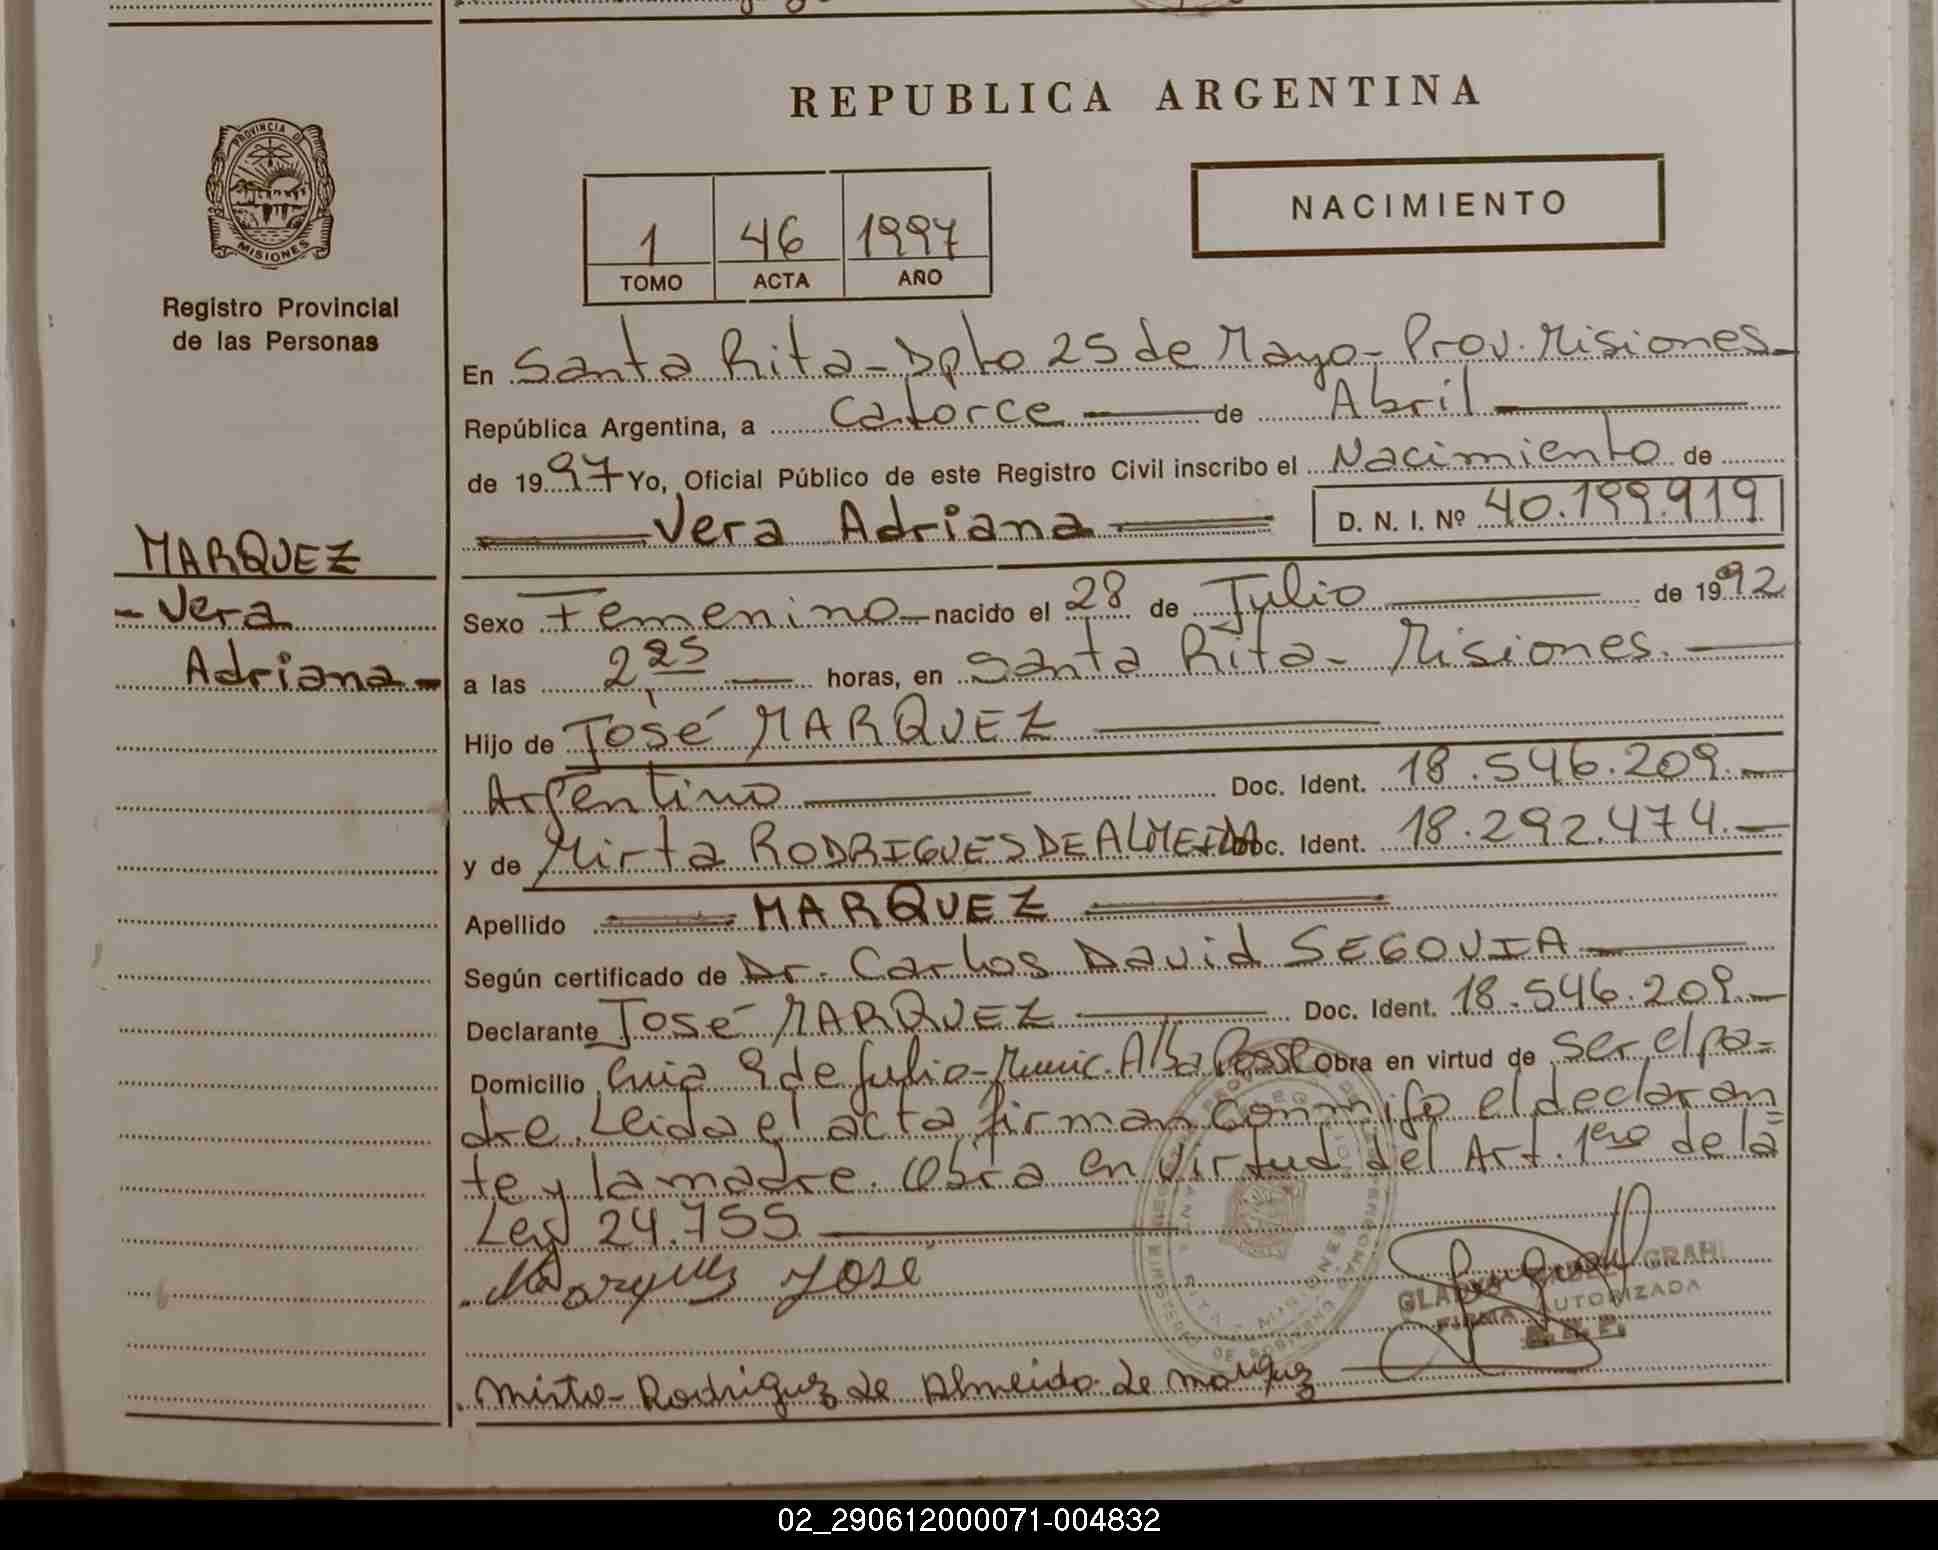 REPUBLICA ARGENTINA
PROVINCIA DE MISIONES
Registro Provincial
de las Personas
NACIMIENTO
1 46 1997
TOMO ACTA AÑO
En Santa Rita - Dpto 25 de Mayo - Prov. Misiones
República Argentina, a Catorce de Abril
de 1997 Yo, Oficial Público de este Registro Civil inscribo el Nacimiento de
Vera Adriana D. N. I. Nº 40.199.919
MARQUEZ
- Vera
Adriana -
Sexo Femenino nacido el 28 de Julio de 1992
a las 2,25 horas, en Santa Rita - Misiones.
Hijo de José MARQUEZ
Argentino Doc. Ident. 18.546.209.-
y de Mirta RODRIGUES DE ALMEIDA Doc. Ident. 18.292.474.-
Apellido MARQUEZ
Según certificado de Dr. Carlos David SEGOVIA
Declarante José MARQUEZ Doc. Ident. 18.546.209.-
Domicilio 9 de julio - Munic. Alba Posse Obra en virtud de ser el pa-
dre. Leida el acta firman conmigo el declaran
te y la madre. Obra en virtud del Art. 1ero de la
Ley 24.755
Marquez José
GRAH
FIRMA AUTORIZADA
Mirta - Rodriguez de Almeida de Marquez
02_290612000071-004832